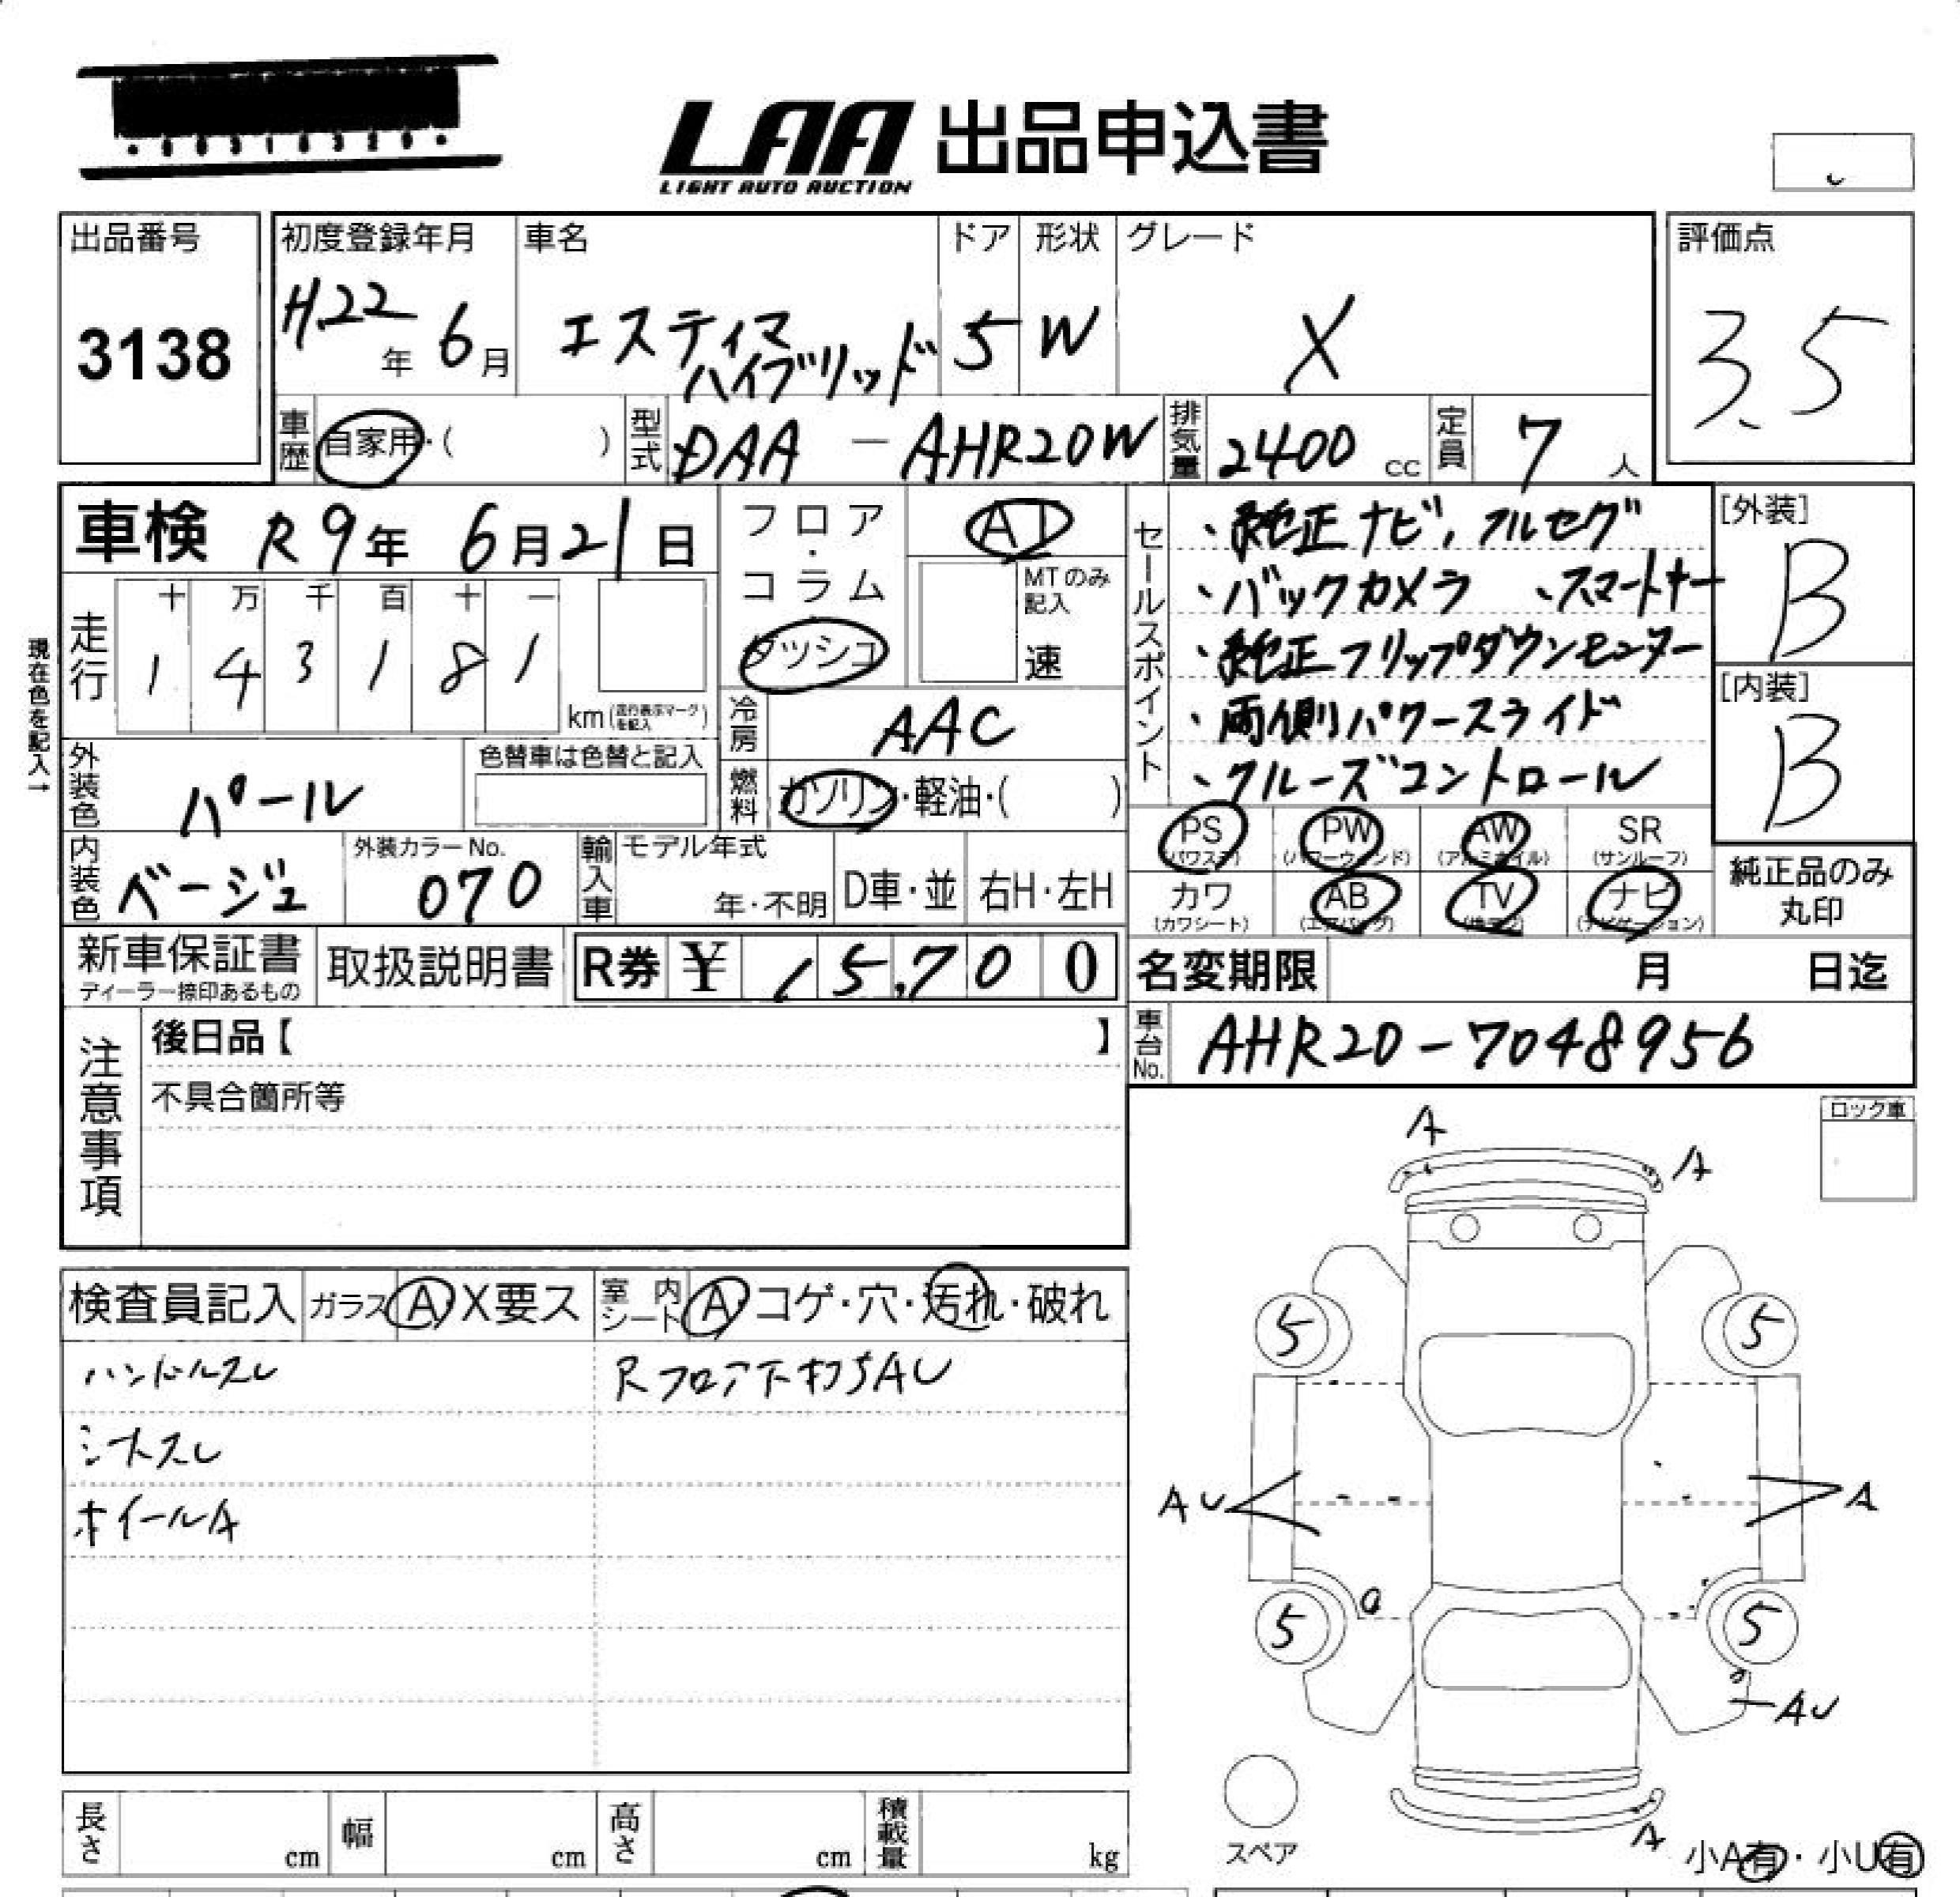 LAA 出品申込書
LIGHT AUTO AUCTION
出品番号
3138
初度登録年月
H.22年 6月
車名
エスティマ
ハイブリッド
ドア
5
形状
W
グレード
X
評価点
3.5
車歴
自家用・( )
型式
DAA - AHR20W
排気量
2400 cc
定員
7 人
車検 R9年 6月21日
フロア・コラム
ダッシュ
AT
MTのみ記入
速
セールスポイント
・純正ナビ,フルセグ
・バックカメラ ・スマートキー
・純正フリップダウンモニター
・両側パワースライド
・クルーズコントロール
[外装]
B
[内装]
B
現在色を記入→
走行
十 万 千 百 十 一
1 4 3 1 8 1
km(走行表示マークを記入)
冷房
AAC
外装色
パール
色替車は色替と記入
燃料
ガソリン・軽油・( )
PS PW AW SR
(パワステ) (パワーウィンド) (アルミホイル) (サンルーフ)
内装色
ベージュ
外装カラーNo.
070
輸入車
モデル年式
年・不明
D車・並
右H・左H
カワ AB TV ナビ
(カワシート) (エアバッグ) (地デジ) (ナビゲーション)
純正品のみ
丸印
新車保証書
ディーラー捺印あるもの
取扱説明書
R券 ¥ 15,700
名変期限 月 日迄
注意事項
後日品【 】
不具合箇所等
車台No.
AHR20-7048956
ロック車
検査員記入 ガラス A X要ス 室内シート A コゲ・穴・汚れ・破れ
ハンドルスレ
Rフロア下打ちAU
シートスレ
ホイールA
A
A
5
5
AU
A
5
5
AU
スペア
A
小A有・小U有
長さ cm 幅 cm 高さ cm 積載量 kg